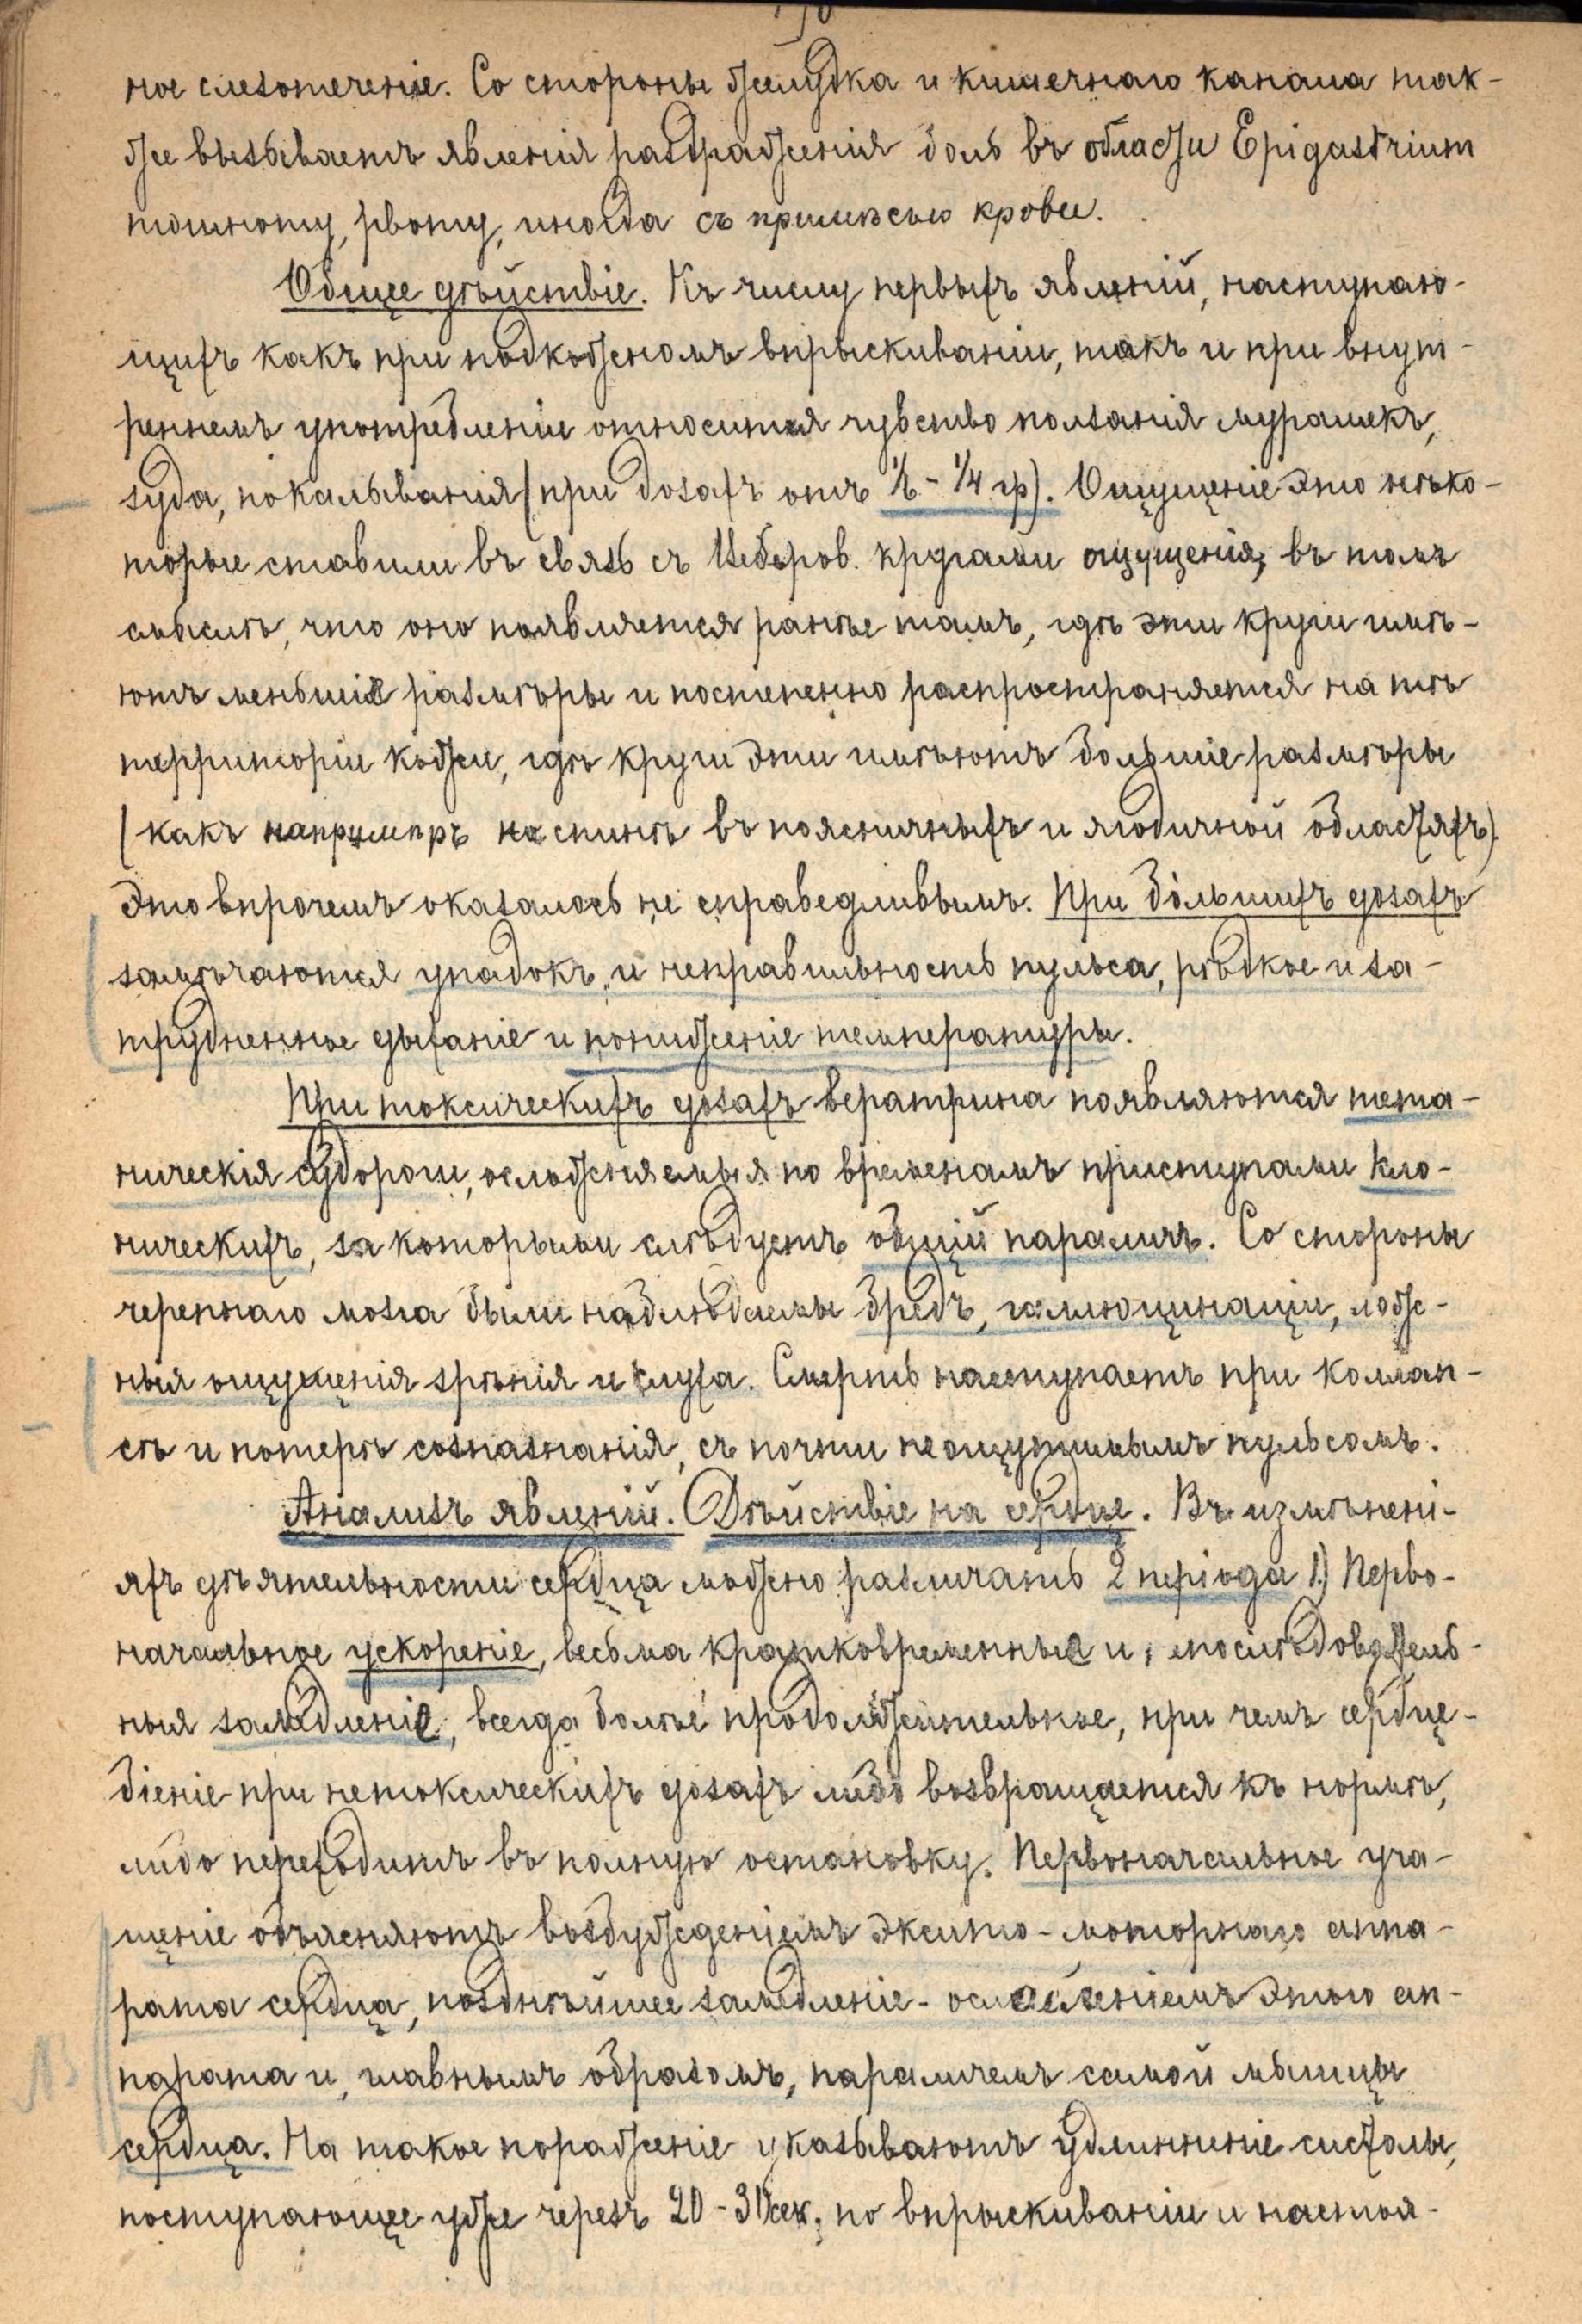 ное слезотеченіе. Со стороны желудка и кишечнаго канала так-
же вызываетъ явленія раздраженія боль въ области Epigastrium
тошноту, рвоту, иногда съ примѣсью крови.
Общее дѣйствіе. Къ числу первыхъ явленій, наступаю-
щихъ какъ при подкожномъ впрыскиваніи, такъ и при внут-
реннемъ употребленіи относится чувство ползанія мурашекъ,
зуда, покалыванія (при дозахъ отъ 1/6 - 1/4 гр). Ощущеніе это нѣко-
торые ставили въ связь съ Веберов. кругами ощущенія, въ томъ
смыслѣ, что оно появляется ранѣе тамъ, гдѣ эти круги имѣ-
ютъ меньшіе размѣры и постепенно распространяется на тѣ
территоріи кожи, гдѣ круги эти имѣютъ большіе размѣры
(какъ напримѣръ на спинѣ въ поясничныхъ и ягодичной областяхъ).
Это впрочемъ оказалось не справедливымъ. При бо́льшихъ дозахъ
замѣчаются упадокъ и неправильность пульса, рѣдкое и за-
трудненное дыханіе и пониженіе температуры.
При токсическихъ дозахъ вератрина появляются тета-
ническія судороги, осложняемыя по временамъ приступами кло-
ническихъ, за которыми слѣдуетъ общій параличъ. Со стороны
черепнаго мозга были наблюдаемы бредъ, галлюцинаціи, лож-
ныя ощущенія зрѣнія и слуха. Смерть наступаетъ при коллап-
сѣ и потерѣ созназнанія, съ почти неощутимымъ пульсомъ.
Анализъ явленій. Дѣйствіе на сердце. Въ измѣнені-
яхъ дѣятельности сердца можно различать 2 періода 1) Перво-
начальное ускореніе, весьма кратковременные и, послѣдователь-
ныя замедленіе, всегда болѣе продолжительное, при чемъ сердце-
біеніе при нетоксическихъ дозахъ либо возвращается къ нормѣ,
либо переходитъ въ полную остановку. Первоначальное уча-
щеніе объясняютъ возбужденіемъ эксито-моторнаго аппа-
рата сердца, позднѣйшее замедленіе - ослабленіемъ этого ап-
парата и, главнымъ образомъ, параличемъ самой мышцы
сердца. На такое пораженіе указываютъ удлинненіе систолы,
поступающее уже черезъ 20 - 30 сек. по впрыскиваніи и настоя-